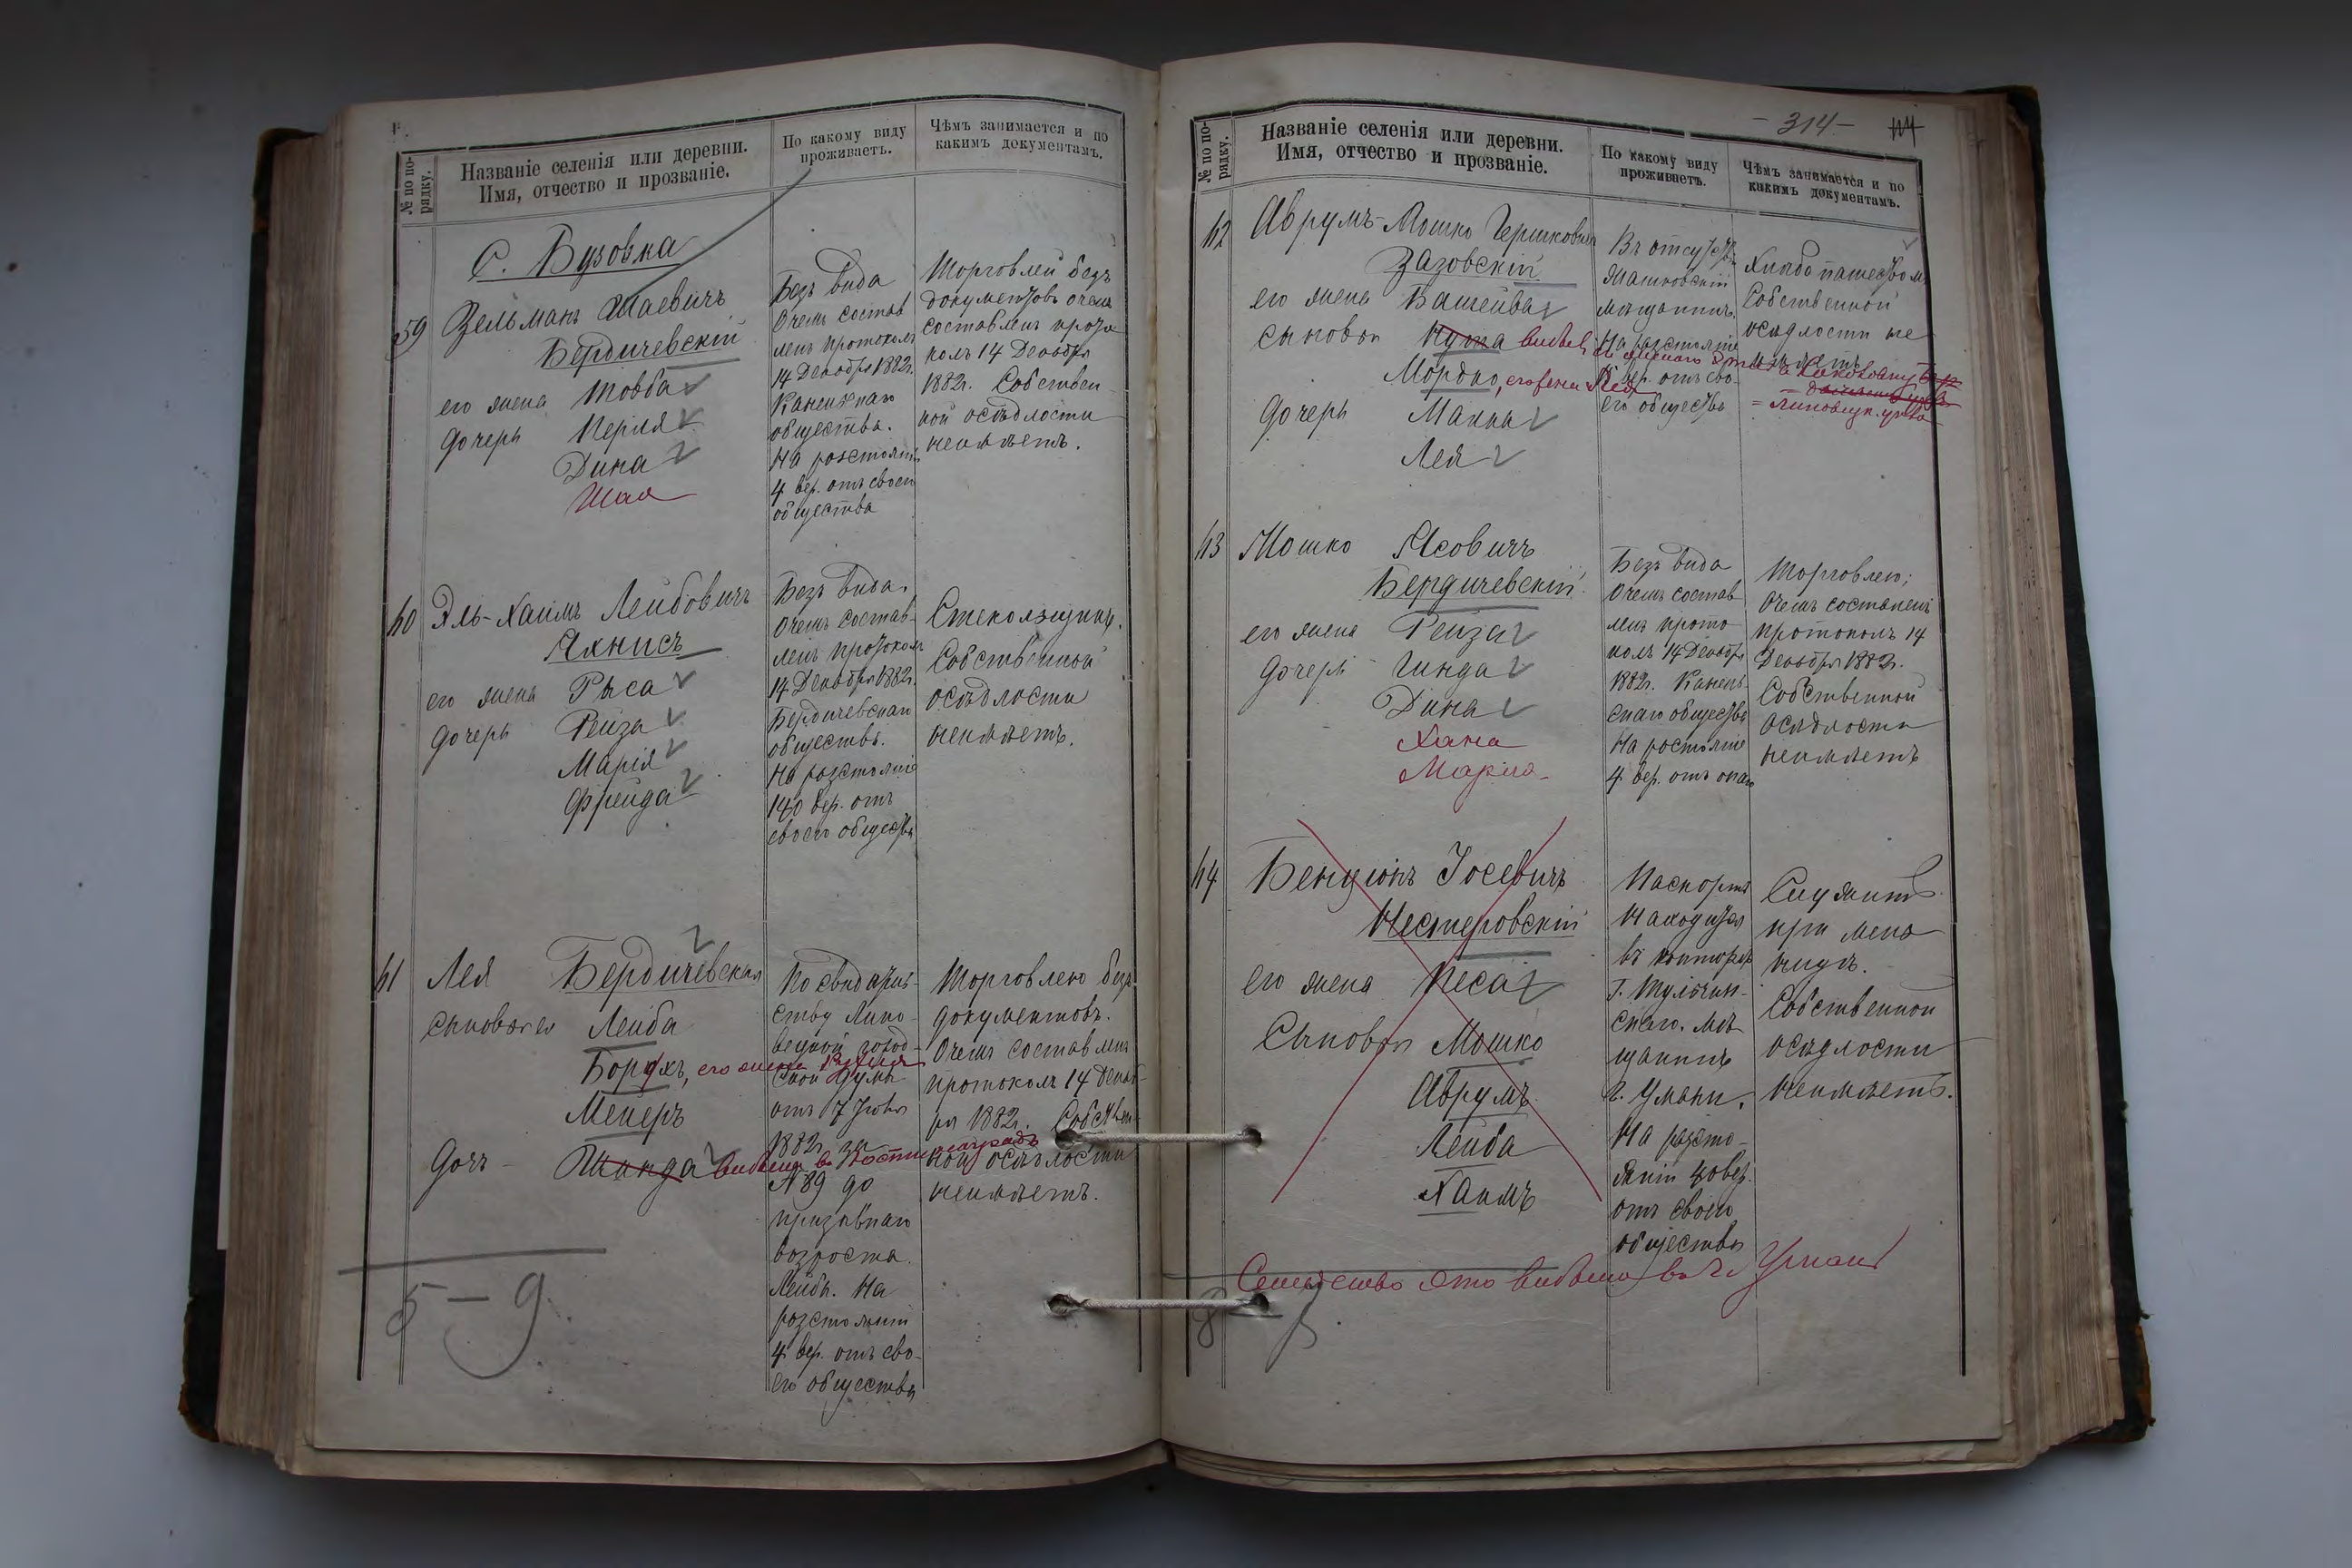 № по по-
рядку.
Названіе селенія или деревни.
Имя, отчество и прозваніе.
По какому виду
проживаетъ.
Чѣмъ занимается и по
какимъ документамъ.
С. Бузовка
59
Зельманъ Шаевичъ
Бердичевскій
его жена Товба
дочери Перля
Дина
Шая
Безъ вида
О чемъ состав
ленъ протоколъ
14 Декабря 1882г.
общества.
На разстояніи
4 вер. отъ своего
общества
Торговлей безъ
документовъ о чемъ
составленъ прото
колъ 14 Декабря
1882г. Собствен-
ной осѣдлости
неимѣетъ.
60
Эль-Хаимъ Лейбовичъ
Яхнисъ
его жена Рыса
дочери Рейза
Марія
Фрейда
Безъ вида.
О чемъ состав-
ленъ протоколъ
14 Декабря 1882г.
Бердичевскаго
общества.
На разстояніи
140 вер. отъ
своего общества
Стекольщикъ.
Собственной
осѣдлости
неимѣетъ.
61
Лея Бердичевская
Сыновья ея Лейба
Борухъ, его жена
Мейеръ
Дочь Шинда выбыла въ
По свидѣтель-
ству Липо-
вецкой город-
ской Думы
отъ 7 Іюня
1882г. за
№ 89 до
призывнаго
возроста
Лейбы. На
разстояніи
4 вер. отъ сво-
его общества
Торговлею безъ
документовъ.
О чемъ составленъ
протоколъ 14 Декаб-
ря 1882г. Собствен-
ной осѣдлости
неимѣетъ.
5 — 9
- 314 -
№ по по-
рядку.
Названіе селенія или деревни.
Имя, отчество и прозваніе.
По какому виду
проживаетъ.
Чѣмъ занимается и по
какимъ документамъ.
62
Аврумъ-Мошко Гершковичъ
Зазовскій
его жена Башейва
сыновья Нута выбылъ
Мордко, его жена Лея
дочери Манна
Лея
Въ отсутств.
мѣщанинъ.
На разстояніи
вер. отъ сво-
его общества
Хлѣбопашествомъ
Собственной
осѣдлости не
имѣетъ
63
Мошко Ясовичъ
Бердичевскій
его жена Рейза
дочери Гинда
Дина
Хана
Марія
Безъ вида
О чемъ состав-
ленъ прото
колъ 14 Декабря
1882г. Канель-
скаго общества
На ростояніе
4 вер. отъ онаго
Торговлею;
О чемъ составленъ
протоколъ 14
Декабря 1882г.
Собственной
осѣдлости
неимѣетъ
64
Бенціонъ Іосевичъ
Нестеровскій
его жена Песа
Сыновья Мошко
Аврумъ
Лейба
Хаимъ
Паспортъ
находится
въ конторѣ
г. Тульчин-
скаго. Мѣ
щанинъ
г. Умани.
На разсто-
яніи 40 вер.
отъ своего
общества
Служитъ
при мель
ницѣ.
Собственной
осѣдлости
неимѣетъ.
Семейство это выбыло въ г. Умань